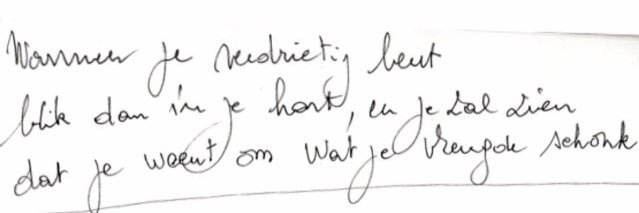 Wanneer je verdrietig bent
blik dan in je hart, en je zal zien
dat je weent om wat je vreugde schonk